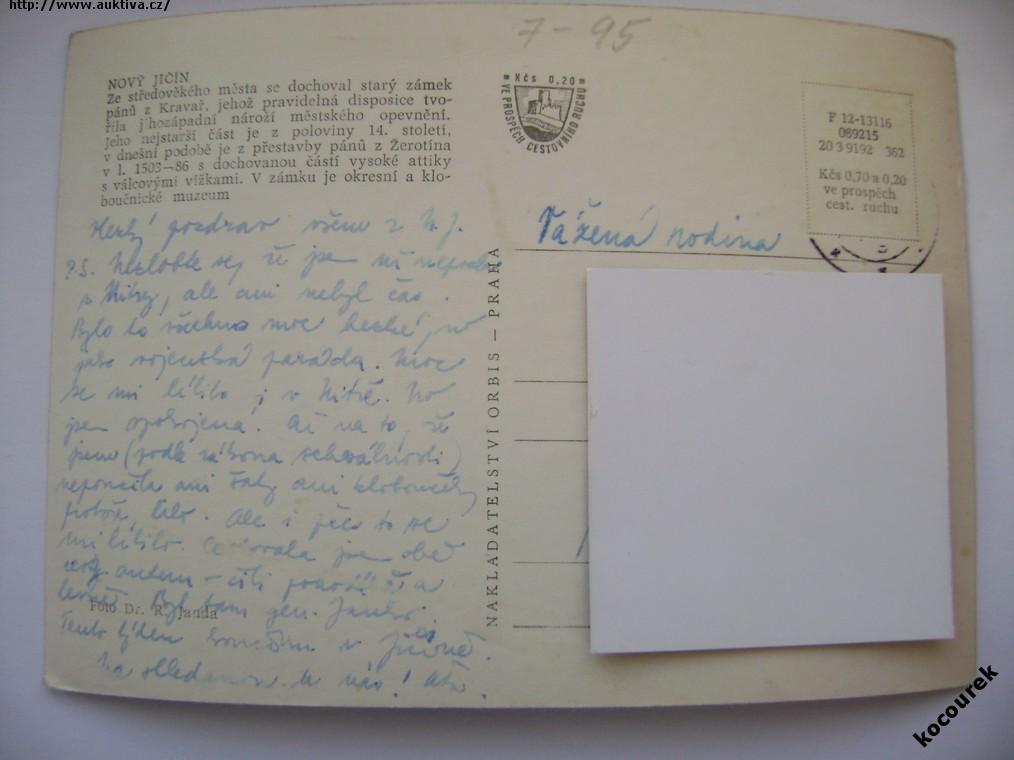 http://www.auktiva.cz/
7-95
NOVÝ JIČÍN
Ze středověkého města se dochoval starý zámek
pánů z Kravař, jehož pravidelná disposice tvo-
řila jihozápadní nároží městského opevnění.
Jeho nejstarší část je z poloviny 14. století,
v dnešní podobě je z přestavby pánů z Žerotína
v l. 1503—86 s dochovanou částí vysoké attiky
s válcovými vížkami. V zámku je okresní a klo-
boučnické muzeum
Kčs 0,20
VE PROSPĚCH CESTOVNÍHO RUCHU
F 12-13116
089215
20 3 9192 362
Kčs 0,70 a 0,20
ve prospěch
cest. ruchu
Hezký pozdrav všem z N. J.
P.S. Nezlobte se, že jsem
z Nitry, ale ani nebyl čas.
Bylo to všechno moc hezké,
jako vojenská paráda. Moc
se mi líbilo i v Nitře.
jsem spokojena. Až na to, že
jsem (podle zákona schválnosti)
ani šaty ani
Ale i přes to se
mi líbilo. Cestovala jsem obě
autem – čili
Byl tam gen.
Tento týden končím v Jičíně.
Na shledanou u vás!
Foto Dr. R. Janda
NAKLADATELSTVÍ ORBIS — PRAHA
Vážená rodina
kocourek